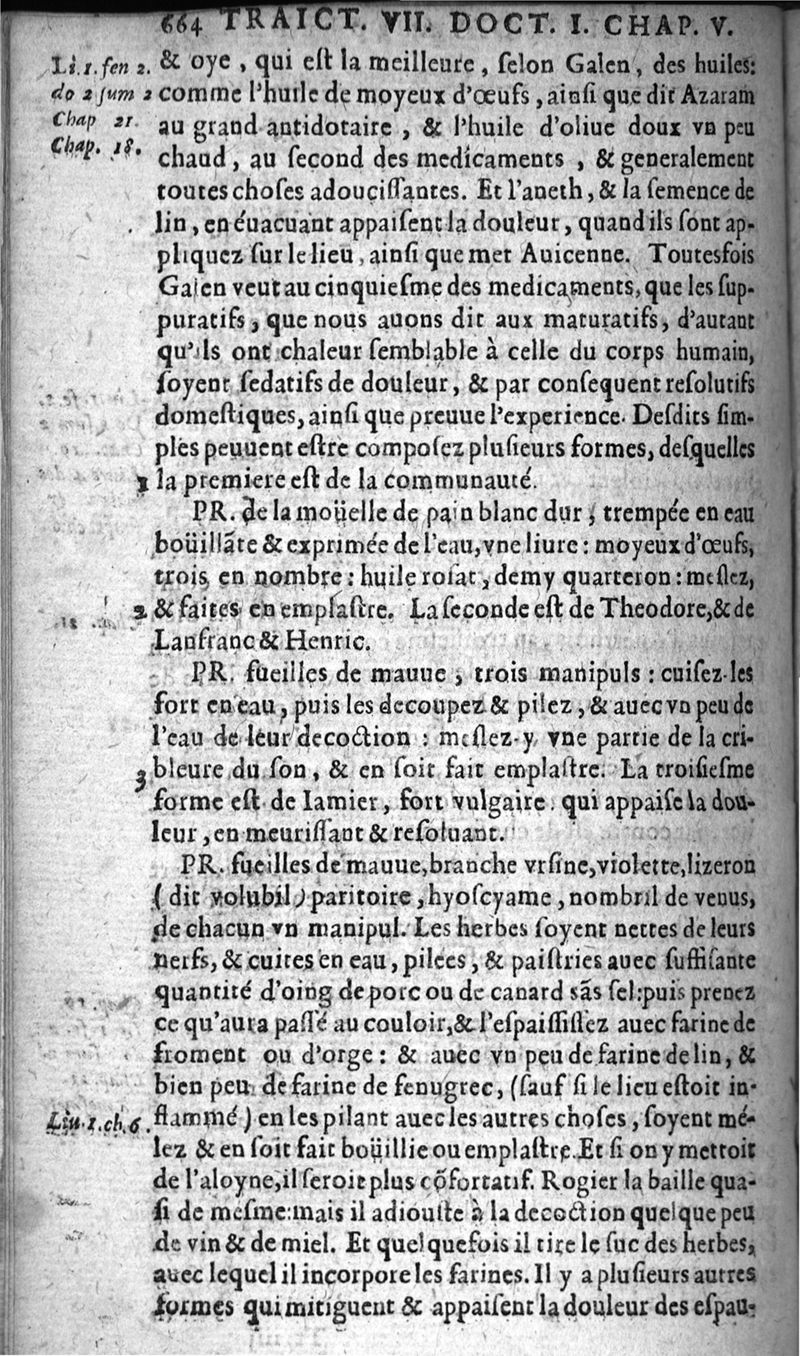 664 TRAICT. VII. DOCT. I. CHAP. V.
Li.1.fen 2. & oye , qui eſt la meilleure , ſelon Galen, des huiles:
do 2 ſum 2 comme l'huile de moyeux d'œufs , ainſi que dit Azaram
Chap 21. au grand antidotaire , & l'huile d'oliue doux vn peu
Chap. 18. chaud , au ſecond des medicaments , & generalement
toutes choſes adouçiſſantes. Et l'aneth, & la ſemence de
lin , en éuacuant appaiſent la douleur , quand ils ſont ap-
pliquez ſur le lieu , ainſi que met Auicenne. Toutesfois
Galen veut au cinquieſme des medicaments, que les ſup-
puratifs , que nous auons dit aux maturatifs, d'autant
qu'ils ont chaleur ſemblable à celle du corps humain,
ſoyent ſedatifs de douleur , & par conſequent reſolutifs
domeſtiques, ainſi que preuue l'experience. Deſdits ſim-
ples peuuent eſtre compoſez pluſieurs formes, deſquelles
1 la premiere eſt de la communauté.
PR. de la moüelle de pain blanc dur , trempée en eau
boüillāte & exprimée de l'eau, vne liure : moyeux d'œufs,
trois en nombre : huile roſat , demy quarteron : meſlez,
2 & faites en emplaſtre. La ſeconde eſt de Theodore,& de
Lanfranc & Henric.
PR. fueilles de mauue , trois manipuls : cuiſez-les
fort en eau , puis les decoupez & pilez , & auec vn peu de
l'eau de leur decoction : meſlez-y vne partie de la cri-
bleure du ſon , & en ſoit fait emplaſtre. La troiſieſme
3 forme eſt de Iamier , fort vulgaire , qui appaiſe la dou-
leur , en meuriſſant & reſoluant.
PR. fueilles de mauue,branche vrſine,violette,lizeron
( dit volubil ) paritoire , hyoſcyame , nombril de venus,
de chacun vn manipul. Les herbes ſoyent nettes de leurs
nerfs, & cuites en eau , pilees , & paiſtries auec ſuffiſante
quantité d'oing de porc ou de canard sās ſel:puis prenez
ce qu'aura paſſé au couloir,& l'eſpaiſſiſſez auec farine de
froment ou d'orge : & auec vn peu de farine de lin, &
bien peu de farine de fenugrec, (ſauf ſi le lieu eſtoit in-
Liu.1.ch.6. flammé ) en les pilant auec les autres choſes , ſoyent mé-
lez & en ſoit fait boüillie ou emplaſtre.Et ſi on y mettoit
de l'aloyne,il ſeroit plus cōfortatif. Rogier la baille qua-
ſi de meſme:mais il adiouſte à la decoction quelque peu
de vin & de miel. Et quelquefois il tire le ſuc des herbes,
auec lequel il incorpore les farines. Il y a pluſieurs autres
formes qui mitiguent & appaiſent la douleur des eſpau-